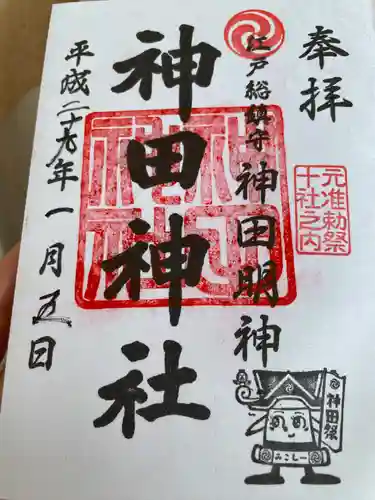 奉拝
元准勅祭
十社之内
江戸総鎮守
神田明神
神田祭
みこしー
神田神社
平成二十九年一月五日